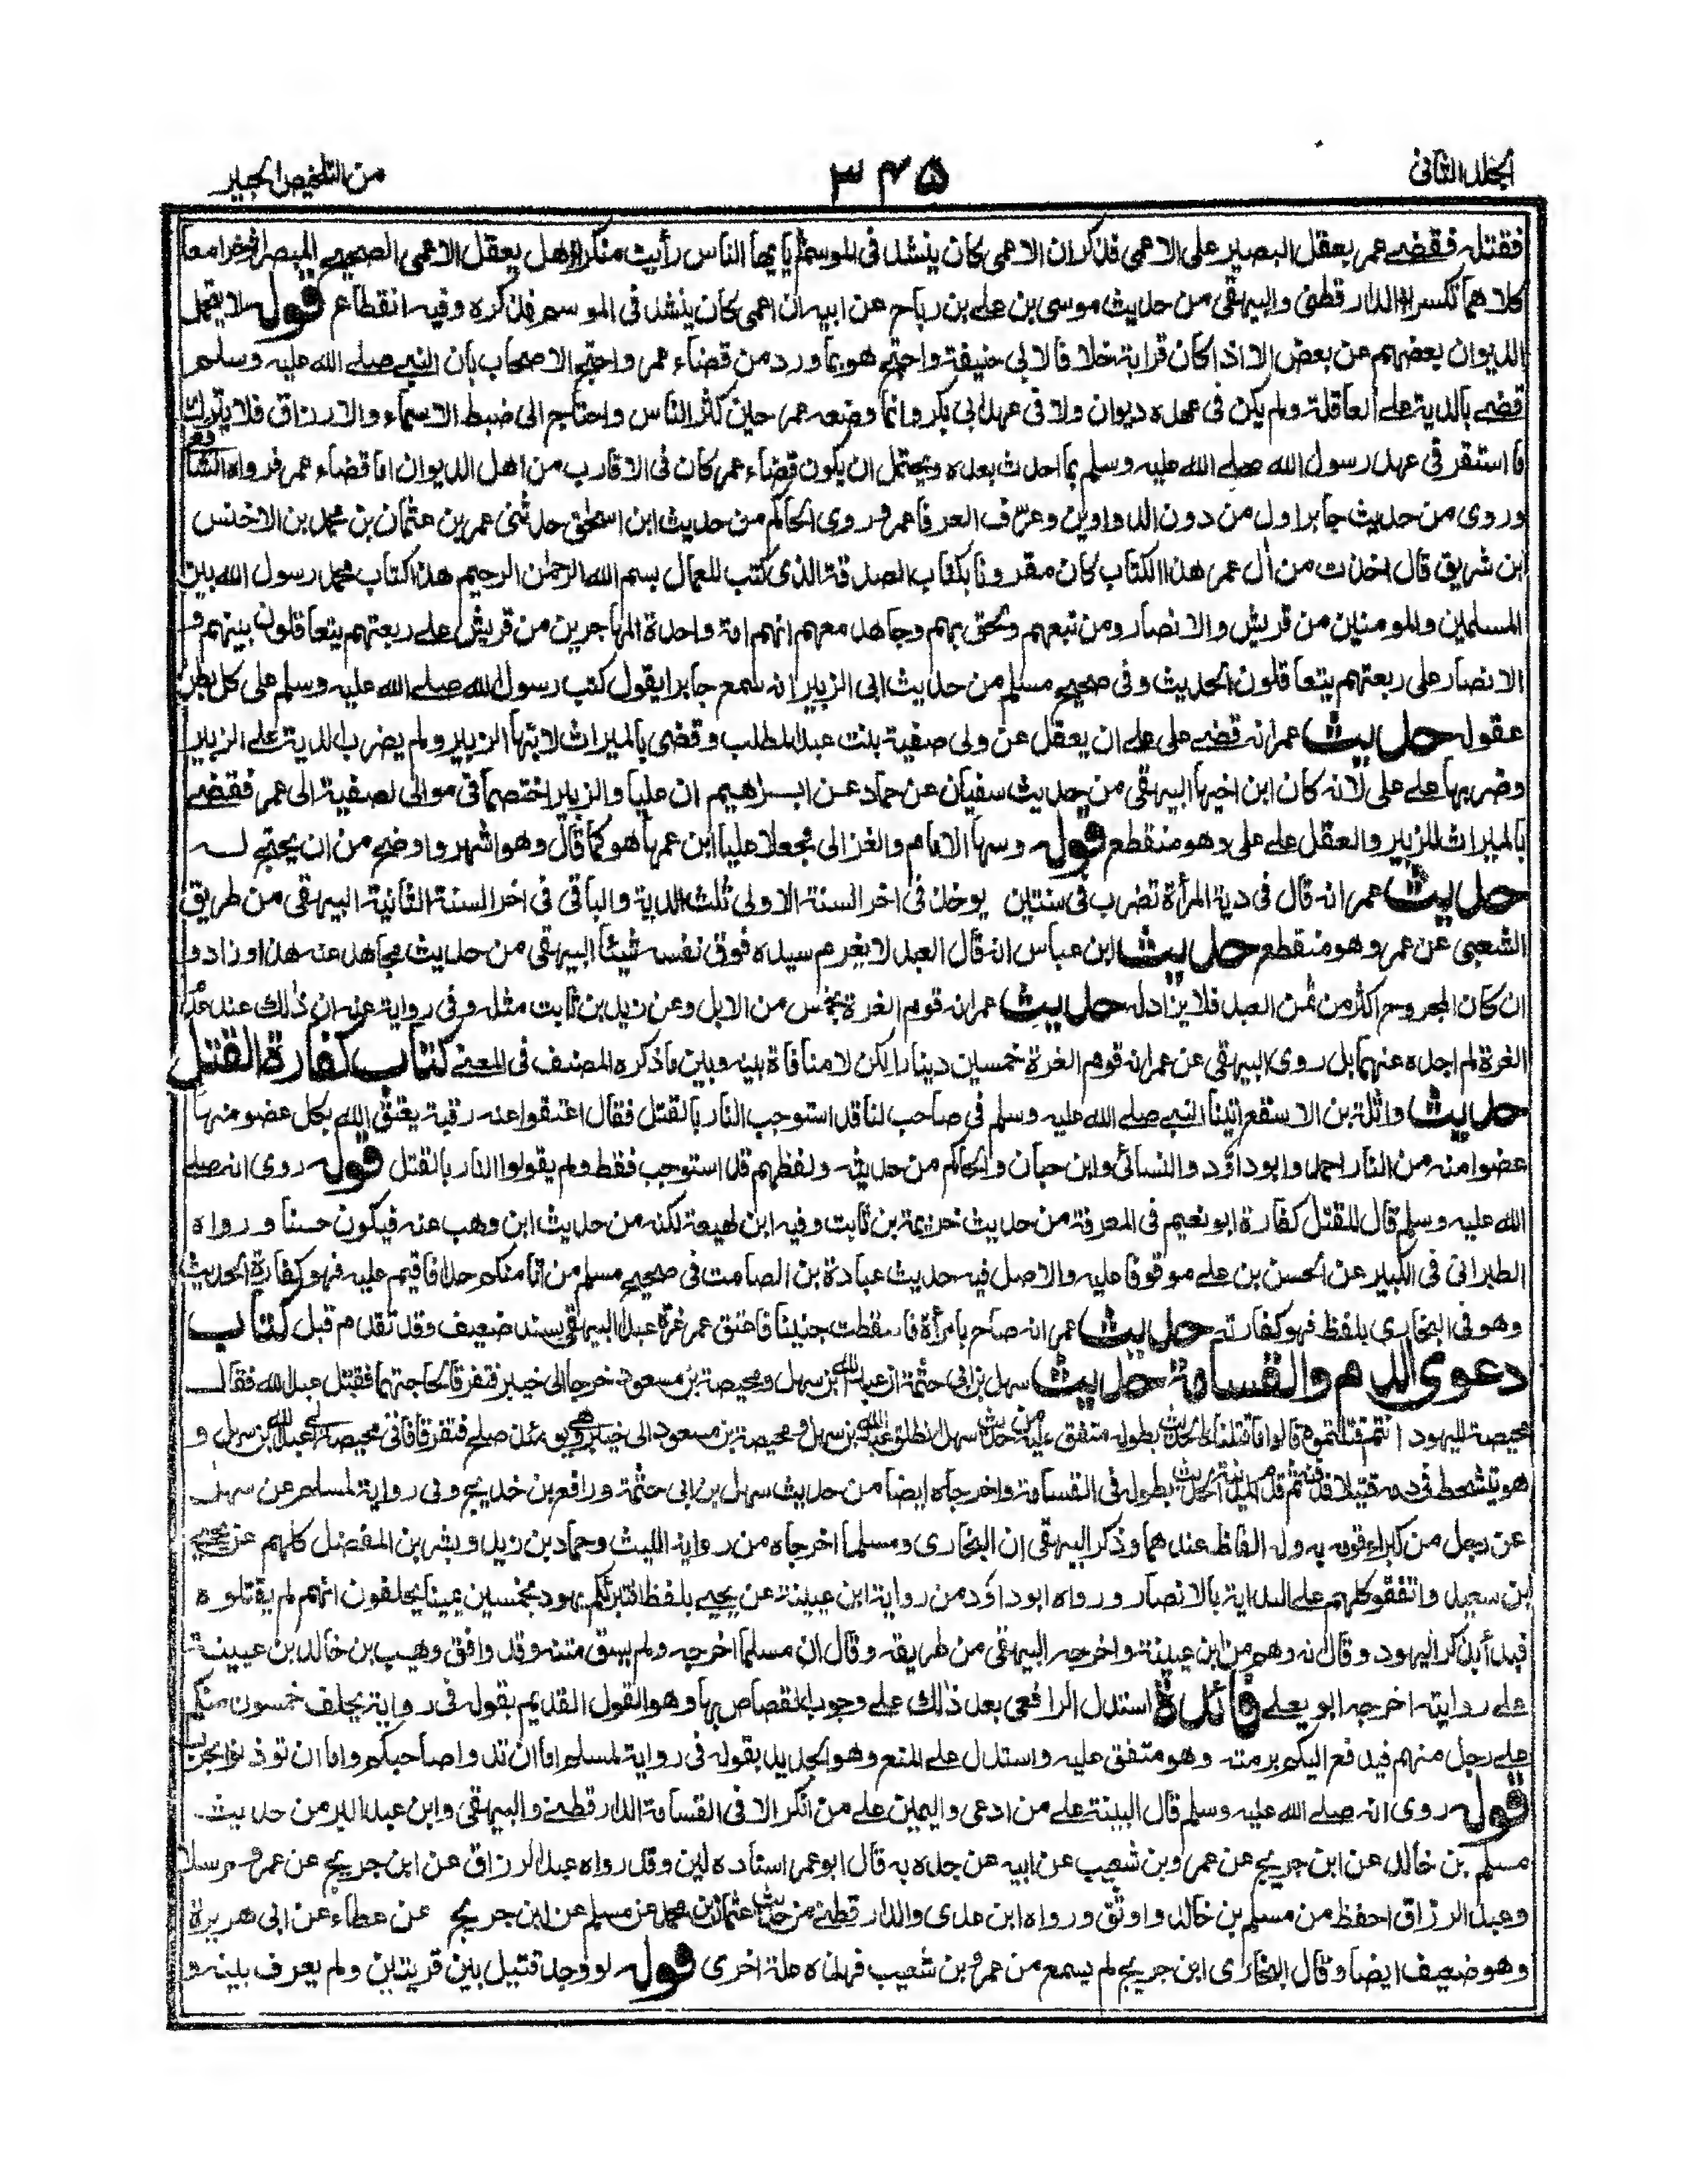 المجلد الثانى
٣٤٥
من التلخيص الحبير
فقتله فقضے عمر بعقل البصير على الاعمى فذكر ان الاعمى كان ينشد فى الموسم يايها الناس رأيت منكرا هل يعقل الاعمى الصحيح المبصرا خرا معا
كلاهما تكسرا الدارقطنى والبيهقى من حديث موسى بن على بن رباح عن ابيه ان اعمى كان ينشد فى الموسم فذكره وفيه انقطاع قوله لا يتحمل
الديوان بعضهم عن بعض الا اذا كان قرابة خلافا لابى حنيفة واحتج هو بما ورد من قضاء عمر واحتج الاصحاب بان النبى صلے الله عليه وسلم
قضے بالدية علے العاقلة ولم يكن فى عهده ديوان ولا فى عهد ابى بكر وانما وضعه عمر حين كثر الناس واحتاج الى ضبط الاسماء والارزاق فلا يترك
ما استقر فى عهد رسول الله صلے الله عليه وسلم بما احدث بعده ويحتمل ان يكون قضاء عمر كان فى الاقارب من اهل الديوان اما قضاء عمر فرواه الشافعى
وروى من حديث جابر اول من دون الدواوين وعرف العرفا عمر وروى الحاكم من حديث ابن اسحق حدثنى عمر بن عثمان بن محمد بن الاخنس
ابن شريق قال اخذت من آل عمر هذا الكتاب كان مقرونا بكتاب الصدقة الذى كتب للعمال بسم الله الرحمن الرحيم هذا كتاب محمد رسول الله بين
المسلمين والمومنين من قريش والانصار ومن تبعهم ولحق بهم وجاهد معهم انهم امة واحدة المهاجرين من قريش علے ربعتهم يتعاقلون بينهم و
الانصار على ربعتهم يتعاقلون الحديث وفى صحيح مسلم من حديث ابى الزبير انه سمع جابرا يقول كتب رسول الله صلے الله عليه وسلم على كل بطن
عقوله حديث عمر انه قضے على علے ان يعقل عن ولى صفية بنت عبد المطلب وقضى بالميراث لابنها الزبير ولم يضرب الدية علے الزبير
وضربها علے على لانه كان ابن اخيها البيهقى من حديث سفيان عن حماد عن ابراهيم ان عليا والزبير اختصما فى موالى لصفية الى عمر فقضے
بالميراث للزبير والعقل علے على وهو منقطع قوله وسها الامام والغزالى فجعلا عليا ابن عمها هو كما قال وهو اشهر واوضح من ان يحتج له
حديث عمر انه قال فى دية المرأة تضرب فى سنتين يوخذ فى اخر السنة الاولى ثلث الدية والباقى فى اخر السنة الثانية البيهقى من طريق
الشعبى عن عمر وهو منقطع حديث ابن عباس انه قال العبد لا يغرم سيده فوق نفسه شيئا البيهقى من حديث مجاهد عنه هذا وزاد و
ان كان المجروح اكثر من ثمن العبد فلا يزاد له حديث عمر انه قوم الغرة بخمس من الابل وعن زيد بن ثابت مثله وفى رواية عنه ان ذلك عند عدم
الغرة لم اجده عنهما بل روى البيهقى عن عمر انه قوم الغرة خمسين دينارا لكن لا منافاة بينه وبين ما ذكره المصنف فى المعنے كتاب كفارة القتل
حديث واثلة بن الاسقع اتينا النبى صلے الله عليه وسلم فى صاحب لنا قد استوجب النار بالقتل فقال اعتقوا عنه رقبة يعتق الله بكل عضو منها
عضوا منه من النار احمد وابو داؤد والنسائى وابن حبان والحاكم من حديثه ولفظهم قد استوجب فقط ولم يقولوا النار بالقتل قوله روى انه صلے
الله عليه وسلم قال للقتل كفارة ابو نعيم فى المعرفة من حديث خزيمة بن ثابت وفيه ابن لهيعة لكنه من حديث ابن وهب عنه فيكون حسنا ورواه
الطبرانى فى الكبير عن الحسن بن على موقوفا عليه والاصل فيه حديث عبادة بن الصامت فى صحيح مسلم من اتا منكم حدا فاقيم عليه فهو كفارة الحديث
وهو فى البخارى بلفظ فهو كفارته حديث عمر انه صاح بامرأة فاسقطت جنينا فاعتق عمر غرة عبد البيهقى بسند ضعيف وقد تقدم قبل كتاب
دعوى الدم والقسامة حديث سهل بن ابى حثمة ان عبد الله بن سهل ومحيصة بن مسعود خرجا الى خيبر فتفرقا لحاجتهما فقتل عبد الله فقال
محيصة لليهود انتم قتلتموه قالوا ما قتلناه الحديث بطوله متفق عليه من حديث سهل انطلق عبد الله بن سهل ومحيصة بن مسعود الى خيبر وهى يومئذ صلح فتفرقا فاتى محيصة الى عبد الله بن سهل و
هو يتشحط فى دمه قتيلا فدفنه ثم قدم المدينة الحديث بطوله فى القسامة واخرجاه ايضا من حديث سهل بن ابى حثمة ورافع بن خديج وفى رواية لمسلم عن سهل
عن رجل من كبراء قومه به وله الفاظ عندهما وذكر البيهقى ان البخارى ومسلما اخرجاه من رواية الليث وحماد بن زيد وبشر بن المفضل كلهم عن يحيى
بن سعيد واتفقو كلهم علے البداية بالانصار ورواه ابو داؤد من رواية ابن عيينة عن يحيے بلفظ افتبرئكم يهود بخمسين يمينا يحلفون انهم لم يقتلوه
فبدأ بذكر اليهود وقال انه وهم من ابن عيينة واخرجه البيهقى من طريقه وقال ان مسلما اخرجه ولم يسق متنه وقد وافق وهيب بن خالد بن عيينة
علے روايته اخرجه ابو يعلے فائدة استدل الرافعى بعد ذلك علے وجوب القصاص بها وهو القول القديم بقوله فى رواية يحلف خمسون منكم
علے رجل منهم فيدفع اليكم برمته وهو متفق عليه واستدل علے المنع وهو الجديد بقوله فى رواية لمسلم اما ان تدوا صاحبكم واما ان توذنوا بحرب
قوله روى انه صلے الله عليه وسلم قال البينة علے من ادعى واليمين علے من انكر الا فى القسامة الدارقطنے والبيهقى وابن عبد البر من حديث
مسلم بن خالد عن ابن جريج عن عمرو بن شعيب عن ابيه عن جده به قال ابو عمر اسناده لين وقد رواه عبد الرزاق عن ابن جريج عن عمرو مرسلا
وعبد الرزاق احفظ من مسلم بن خالد واوثق ورواه ابن عدى والدارقطنے من حديث عثمان بن محمد عن مسلم عن ابن جريج عن عطاء عن ابى هريرة
وهو ضعيف ايضا وقال البخارى ابن جريج لم يسمع من عمرو بن شعيب فهذه علة اخرى قوله لو وجد قتيل بين قريتين ولم يعرف بينه